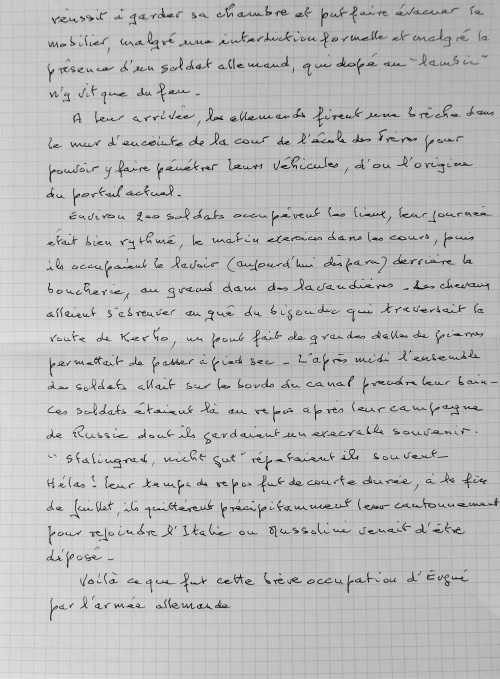 réussit à garder sa chambre et put faire évacuer le
mobilier, malgré une interdiction formelle et malgré la
présence d'un soldat allemand, qui dopé au "lambic"
n'y vit que du feu.
A leur arrivée, les allemands firent une brêche dans
le mur d'enceinte de la cour de l'école des Frères pour
pouvoir y faire pénétrer leurs véhicules, d'ou l'origine
du portail actuel.
Environ 200 soldats occupèrent les lieux, leur journée
était bien rythmé, le matin exercices dans les cours, puis
ils occupaient le lavoir (aujourd'hui disparu) derrière la
boucherie, au grand dam des lavandières. Les chevaux
allaient s'abreuver au gué du bigouden qui traversait la
route de Kerho, un pont fait de grandes dalles de pierres
permettait de passer à pied sec - L'après midi l'ensemble
des soldats allait sur les bords du canal prendre leur bain -
Ces soldats étaient là au repos après leur campagne
de Russie dont ils gardaient un execrable souvenir.
"Stalingrad, nicht gut" répétaient ils souvent -
Hélas! leur temps de repos fut de courte durée, à la fin
de Juillet, ils quittèrent précipitamment leur cantonnement
pour rejoindre l'Italie ou Mussolini venait d'être
déposé -
Voilà ce que fut cette brève occupation d'Évgué
par l'armée allemande